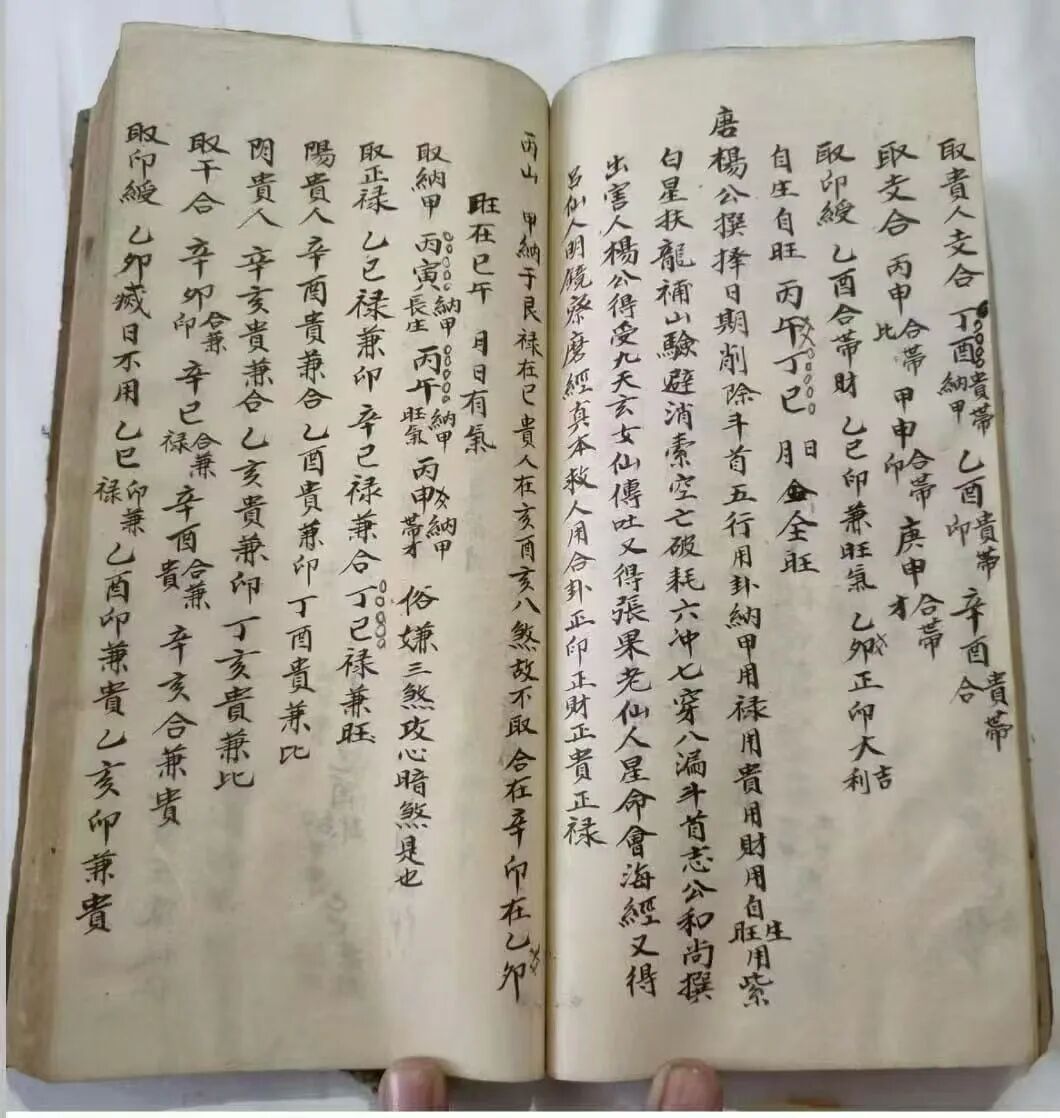 取貴人支合 丁酉貴帶納甲 乙酉貴帶印 辛酉貴帶合
取支合 丙申合帶比 甲申合帶印 庚申合帶才
取印綬 乙酉合帶財 乙巳印兼旺氣 乙卯正印大吉利
自生自旺 丙午丁巳 月日全旺
唐楊公撰擇日期削除斗首五行用卦納甲用禄用貴用財用自生旺用紫
白星扶龍補山驗避消索空亡破耗六冲七穿八漏斗首志公和尚撰
出害人楊公得受九天玄女仙傳吐又得張果老仙人星命會海經又得
呂仙人明鏡察磨經真本救人用合卦正印正財正貴正禄
丙山 甲納于艮禄在巳貴人在亥酉亥八煞故不取合在辛印在乙卯
旺在巳午 月日有氣
取納甲 丙寅納甲長生 丙午納甲旺氣 丙申納甲帶才 俗嫌三煞攻心暗煞是也
取正禄 乙巳禄兼卯 辛巳禄兼合 丁巳禄兼旺
陽貴人 辛酉貴兼合 乙酉貴兼印 丁酉貴兼比
陰貴人 辛亥貴兼合 乙亥貴兼印 丁亥貴兼比
取干合 辛卯合兼印 辛巳合兼禄 辛酉合兼貴 辛亥合兼貴
取印綬 乙卯滅日不用 乙巳印兼禄 乙酉印兼貴 乙亥印兼貴